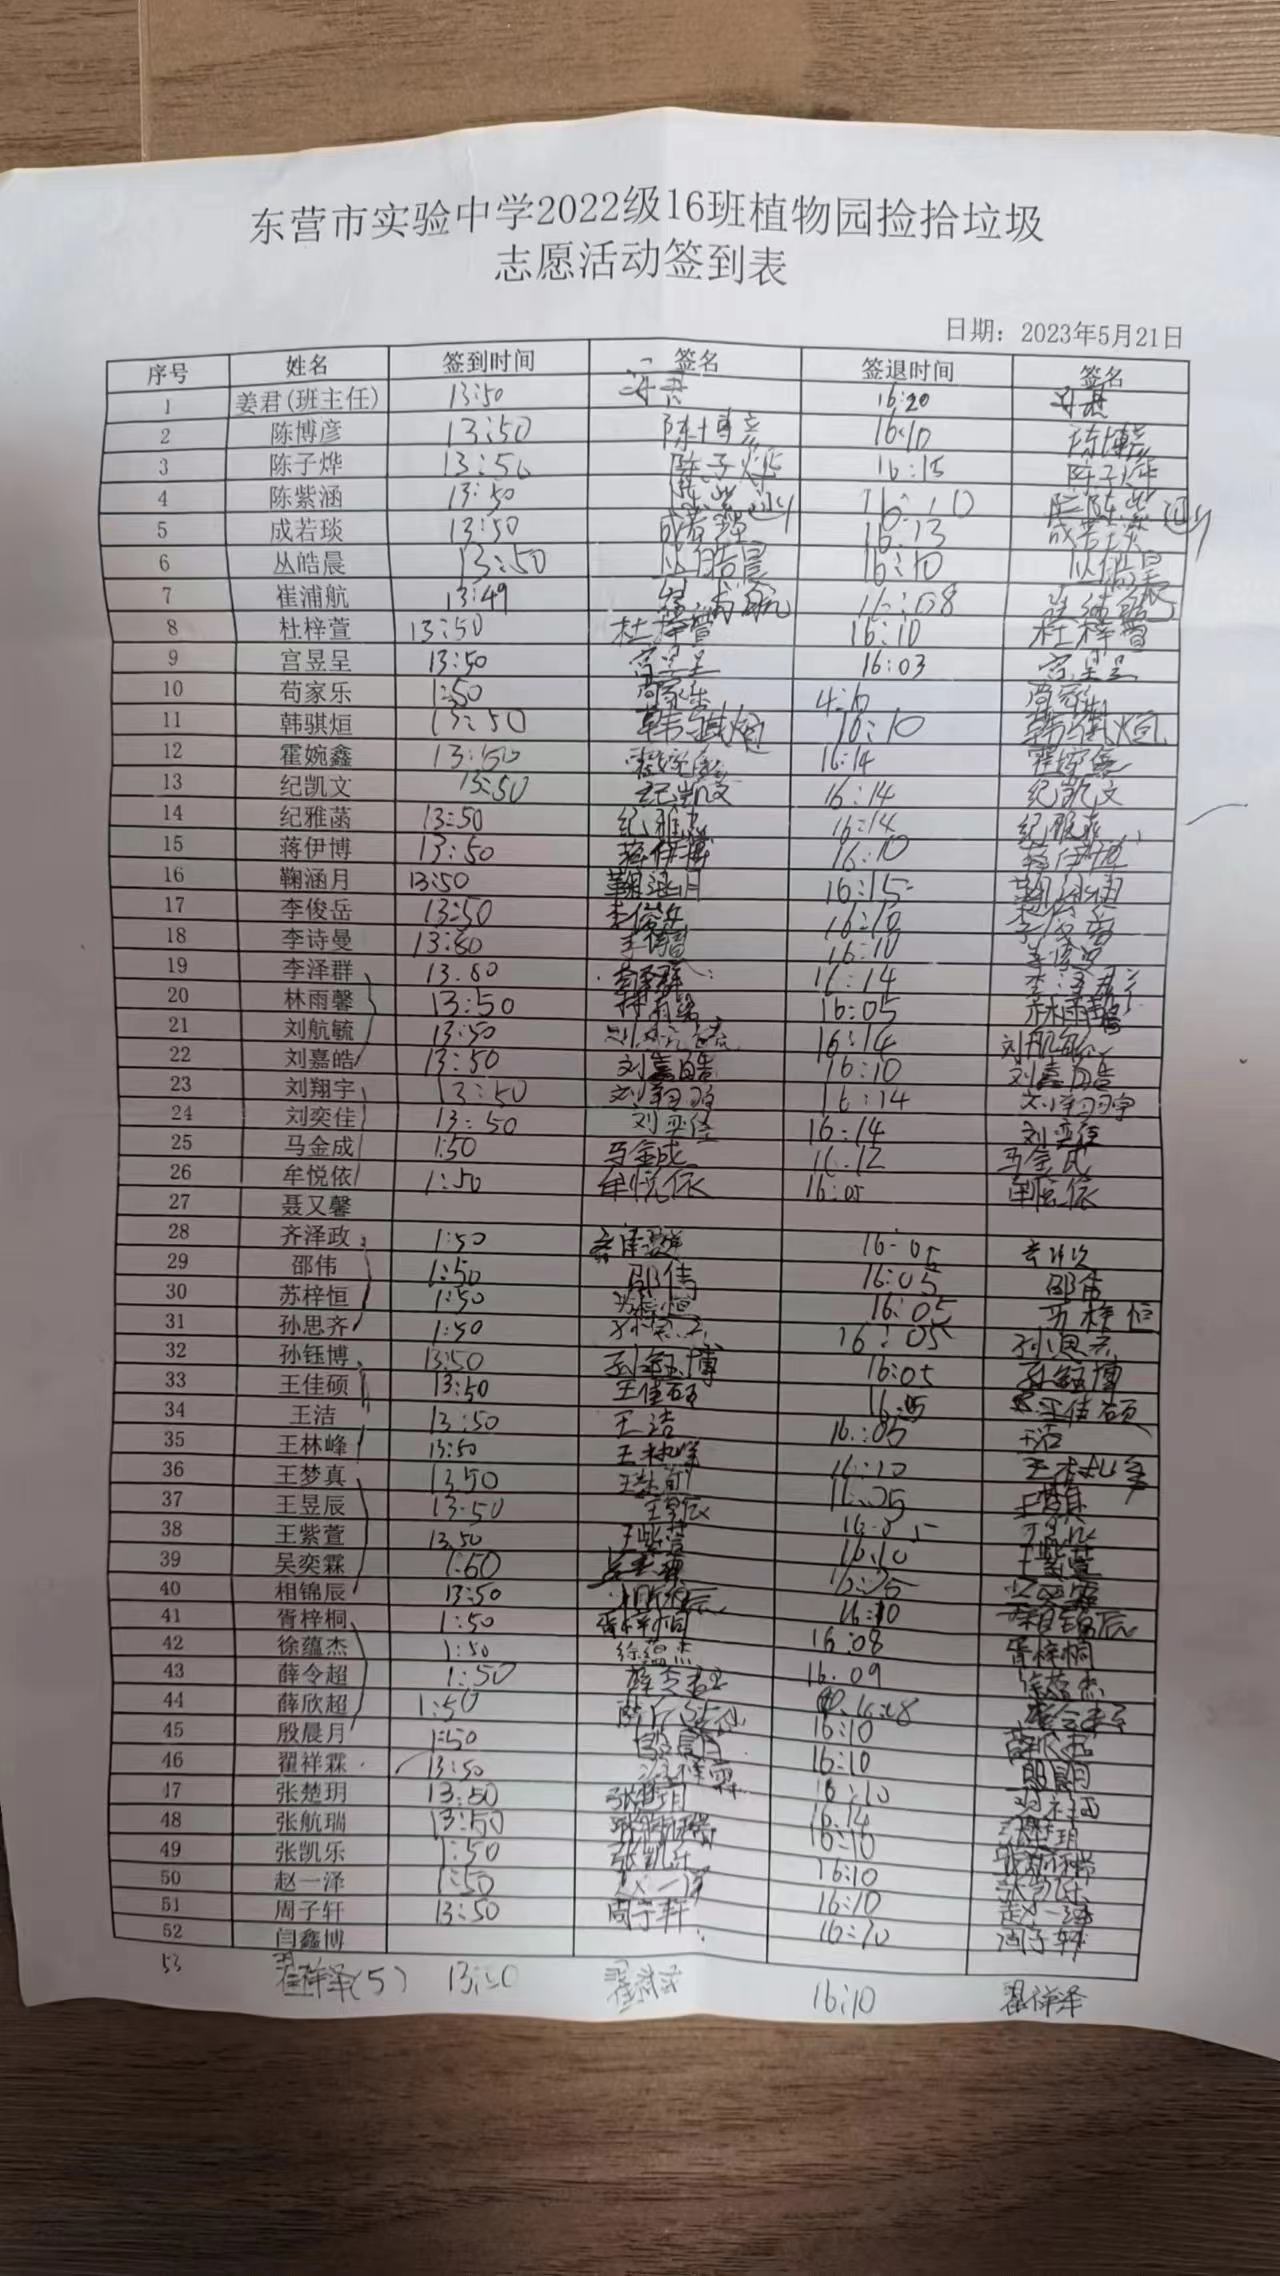 东营市实验中学2022级16班植物园捡拾垃圾
志愿活动签到表
日期：2023年5月21日
序号 姓名 签到时间 签名 签退时间 签名
1 姜君(班主任) 13:50 16:20
2 陈博彦 13:50 陈博彦 16:10 陈博彦
3 陈子烨 13:50 陈子烨 16:15 陈子烨
4 陈紫涵 13:50 陈紫涵 16:10 陈紫涵
5 成若琰 13:50 成若琰 16:13 成若琰
6 丛皓晨 13:50 丛皓晨 16:10 丛皓晨
7 崔浦航 13:49 16:08
8 杜梓萱 13:50 杜梓萱 16:10 杜梓萱
9 宫昱呈 13:50 宫昱呈 16:03 宫昱呈
10 苟家乐 1:50 苟家乐 4:10 苟家乐
11 韩骐烜 13:50 韩骐烜 16:10 韩骐烜
12 霍婉鑫 13:50 霍婉鑫 16:14 霍婉鑫
13 纪凯文 13:50 纪凯文 16:14 纪凯文
14 纪雅菡 13:50 纪雅菡 16:14 纪雅菡
15 蒋伊博 13:50 蒋伊博 16:10 蒋伊博
16 鞠涵月 13:50 鞠涵月 16:15 鞠涵月
17 李俊岳 13:50 李俊岳 16:10 李俊岳
18 李诗曼 13:50 李诗曼 16:10 李诗曼
19 李泽群 13:50 李泽群 16:14 李泽群
20 林雨馨 13:50 林雨馨 16:05 林雨馨
21 刘航毓 13:50 刘航毓 16:14 刘航毓
22 刘嘉皓 13:50 刘嘉皓 16:10 刘嘉皓
23 刘翔宇 13:50 刘翔宇 16:14 刘翔宇
24 刘奕佳 13:50 刘奕佳 16:14 刘奕佳
25 马金成 1:50 马金成 16:12 马金成
26 牟悦依 1:50 牟悦依 16:05 牟悦依
27 聂又馨
28 齐泽政 1:50 16:05
29 邵伟 1:50 邵伟 16:05 邵伟
30 苏梓恒 1:50 苏梓恒 16:05 苏梓恒
31 孙思齐 1:50 孙思齐 16:05 孙思齐
32 孙钰博 13:50 孙钰博 16:05 孙钰博
33 王佳硕 13:50 王佳硕 16:05 王佳硕
34 王洁 13:50 王洁 16:05 王洁
35 王林峰 13:50 王林峰 16:10 王林峰
36 王梦真 13:50 王梦真 16:05 王梦真
37 王昱辰 13:50 王昱辰 王昱辰
38 王紫萱 13:50 王紫萱 16:10 王紫萱
39 吴奕霖 1:50 吴奕霖 吴奕霖
40 相锦辰 13:50 相锦辰 16:10 相锦辰
41 胥梓桐 1:50 胥梓桐 16:08 胥梓桐
42 徐蕴杰 1:50 徐蕴杰 16:09 徐蕴杰
43 薛令超 1:50 薛令超 薛令超
44 薛欣超 1:50 薛欣超 16:10 薛欣超
45 殷晨月 1:50 殷晨月 16:10 殷晨月
46 翟祥霖 13:50 翟祥霖 16:10
47 张楚玥 13:50 张楚玥 16:14 张楚玥
48 张航瑞 13:50 张航瑞 16:10 张航瑞
49 张凯乐 1:50 张凯乐 16:10 张凯乐
50 赵一泽 1:50 赵一泽 16:10 赵一泽
51 周子轩 13:50 周子轩 16:10 周子轩
52 闫鑫博
53 翟祥泽(5) 13:50 翟祥泽 16:10 翟祥泽